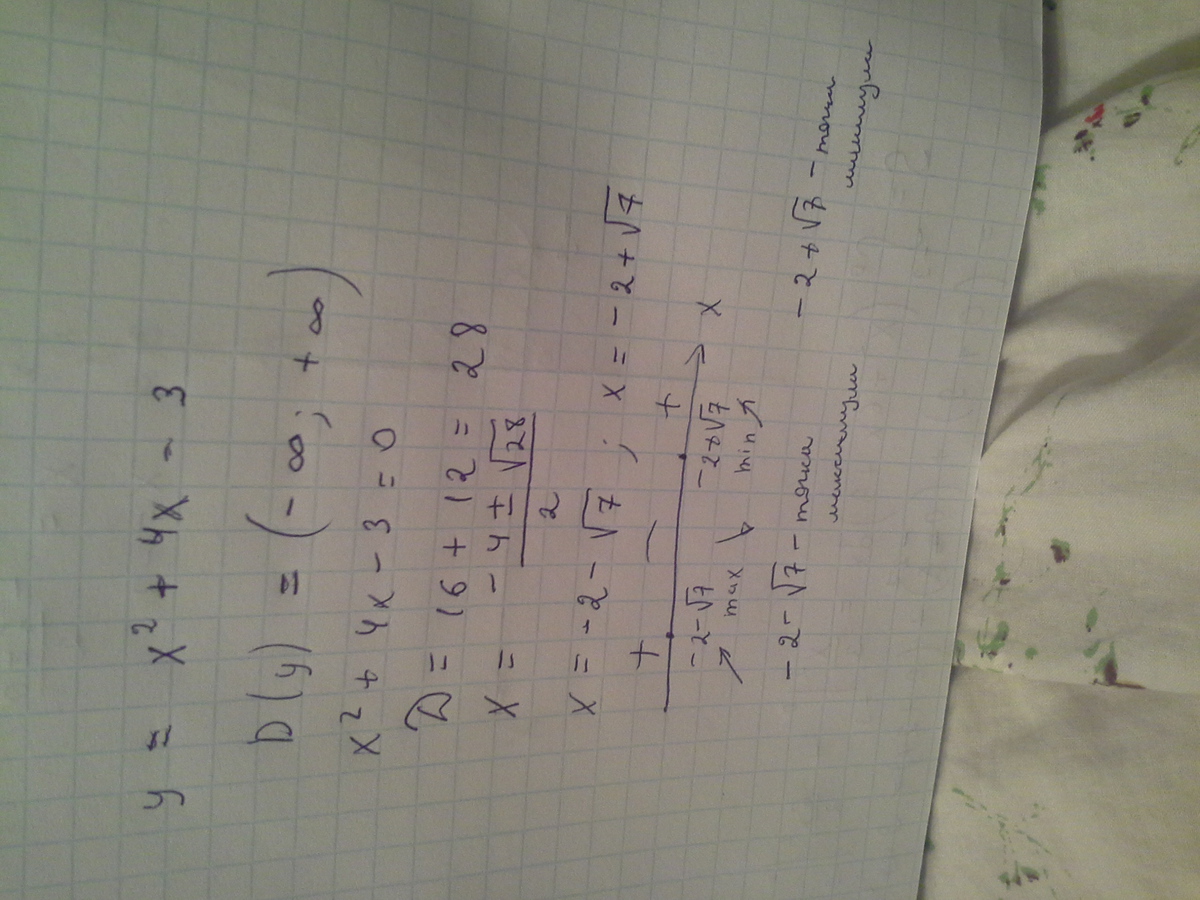 y = x² + 4x - 3
D(y) = (-∞; +∞)
x² + 4x - 3 = 0
D = 16 + 12 = 28
x = -4 ± √28
2
x = -2 - √7 ; x = -2 + √7
+ - +
-2-√7 -2+√7 x
↗ max ↘ min ↗
-2-√7 - точка максимума
-2+√7 - точка минимума